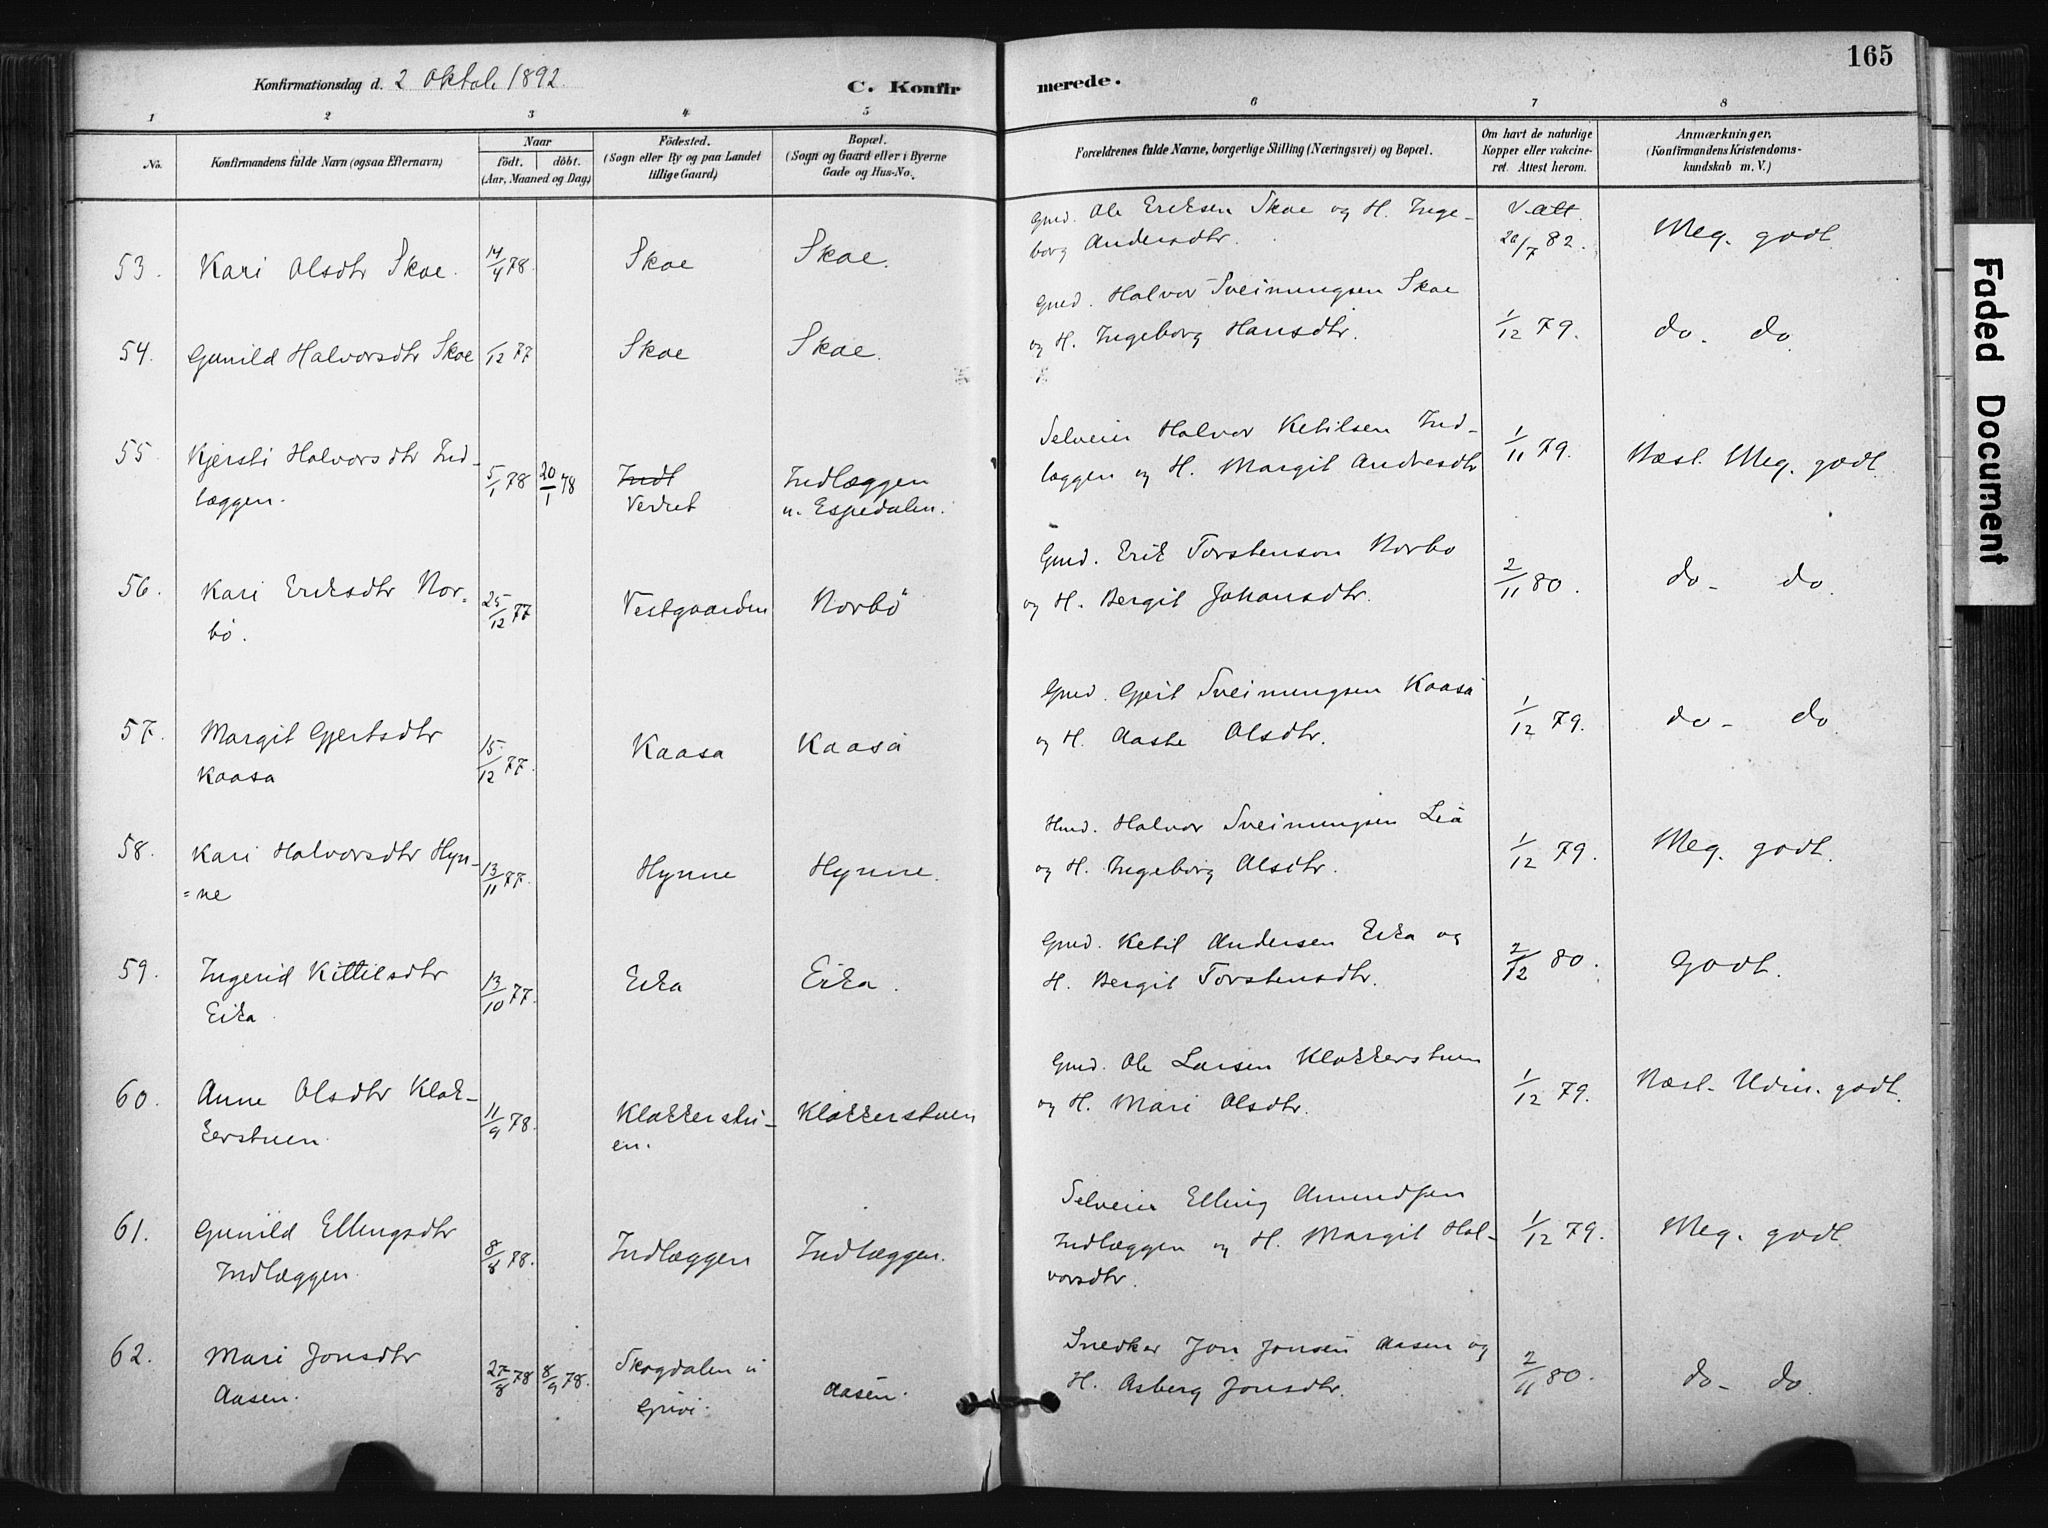 165
Konfirmationsdag d. 2 Oktob. 1892.
C. Konfirmerede.
1 2 3 4 5 6 7 8
No.
Konfirmandens fulde Navn (ogsaa Efternavn)
Naar
födt. döbt.
(Aar, Maaned og Dag)
Födested.
(Sogn eller By og paa Landet
tillige Gaard)
Bopæl.
(Sogn og Gaard eller i Byerne
Gade og Hus-No.
Forældrenes fulde Navne, borgerlige Stilling (Næringsvei) og Bopæl.
Om havt de naturlige
Kopper eller vakcine-
ret. Attest herom.
Anmærkninger.
(Konfirmandens Kristendoms-
kundskab m. V.)
53. Kari Olsdtr Skoe. 14/4 78. Skoe Skoe.
Gmd. Ole Eriksen Skoe og H. Inge-
borg Andersdtr.
V. att.
20/7 82.
Meg. godt
54. Gunild Halvorsdtr Skoe 1/12 77 Skoe Skoe.
Gmd. Halvor Sveinungsen Skoe
og H. Ingeborg Hansdtr.
1/12 79. do. do
55. Kjersti Halvorsdtr Ind-
læggen. 5/1 78 20/1 78
Indl
Verket
Indlæggen
u. Espedalen.
Selveier Halvor Ketilsen Ind-
læggen og H. Margit Andresdtr
1/11 79. Næst. Meg. godt
56. Kari Eriksdtr Nor-
bö. 25/12 77 Vestgaarden Norbö
Gmd. Erik Torstenson Norbo
og H. Bergit Johansdtr.
2/11 80. do - do.
57. Margit Gjertsdtr
Kaasa 15/12 77. Kaasa Kaasa
Gmd. Gjert Sveinungsen Kaasa
og H. Aaste Olsdtr.
1/12 79. do - do.
58. Kari Halvorsdtr Hyn-
=ne 13/11 77. Hynne Hynne.
Hmd. Halvor Sveinungsen Lia
og H. Ingeborg Olsdtr.
1/12 79. Meg. godt.
59. Ingerid Kittilsdtr
Eika 13/10 77. Eika Eika.
Gmd. Ketil Andersen Eika og
H. Bergit Torstensdtr.
2/12 80. Godt.
60. Anne Olsdtr Klok-
kerstuen. 11/9 78.
Klokkerstu-
en.
Klokkerstuen
Gmd. Ole Larsen Klokkerstuen
og H. Mari Olsdtr.
1/12 79. Næst. Udm. godt.
61. Gunild Ellingsdtr
Indlæggen. 8/8 78. Indlæggen Indlæggen.
Selveier Elling Amundsen
Indlæggen og H. Margit Hal-
vorsdtr.
1/12 79. Meg. godt.
62. Mari Jonsdtr
Aasen. 27/8 78 8/9 78.
Skogdalen u
Grivi.
Aasen.
Snedker Jon Jonsen Aasen og
H. Asberg Jonsdtr.
2/11 80. do - do.
Faded Document